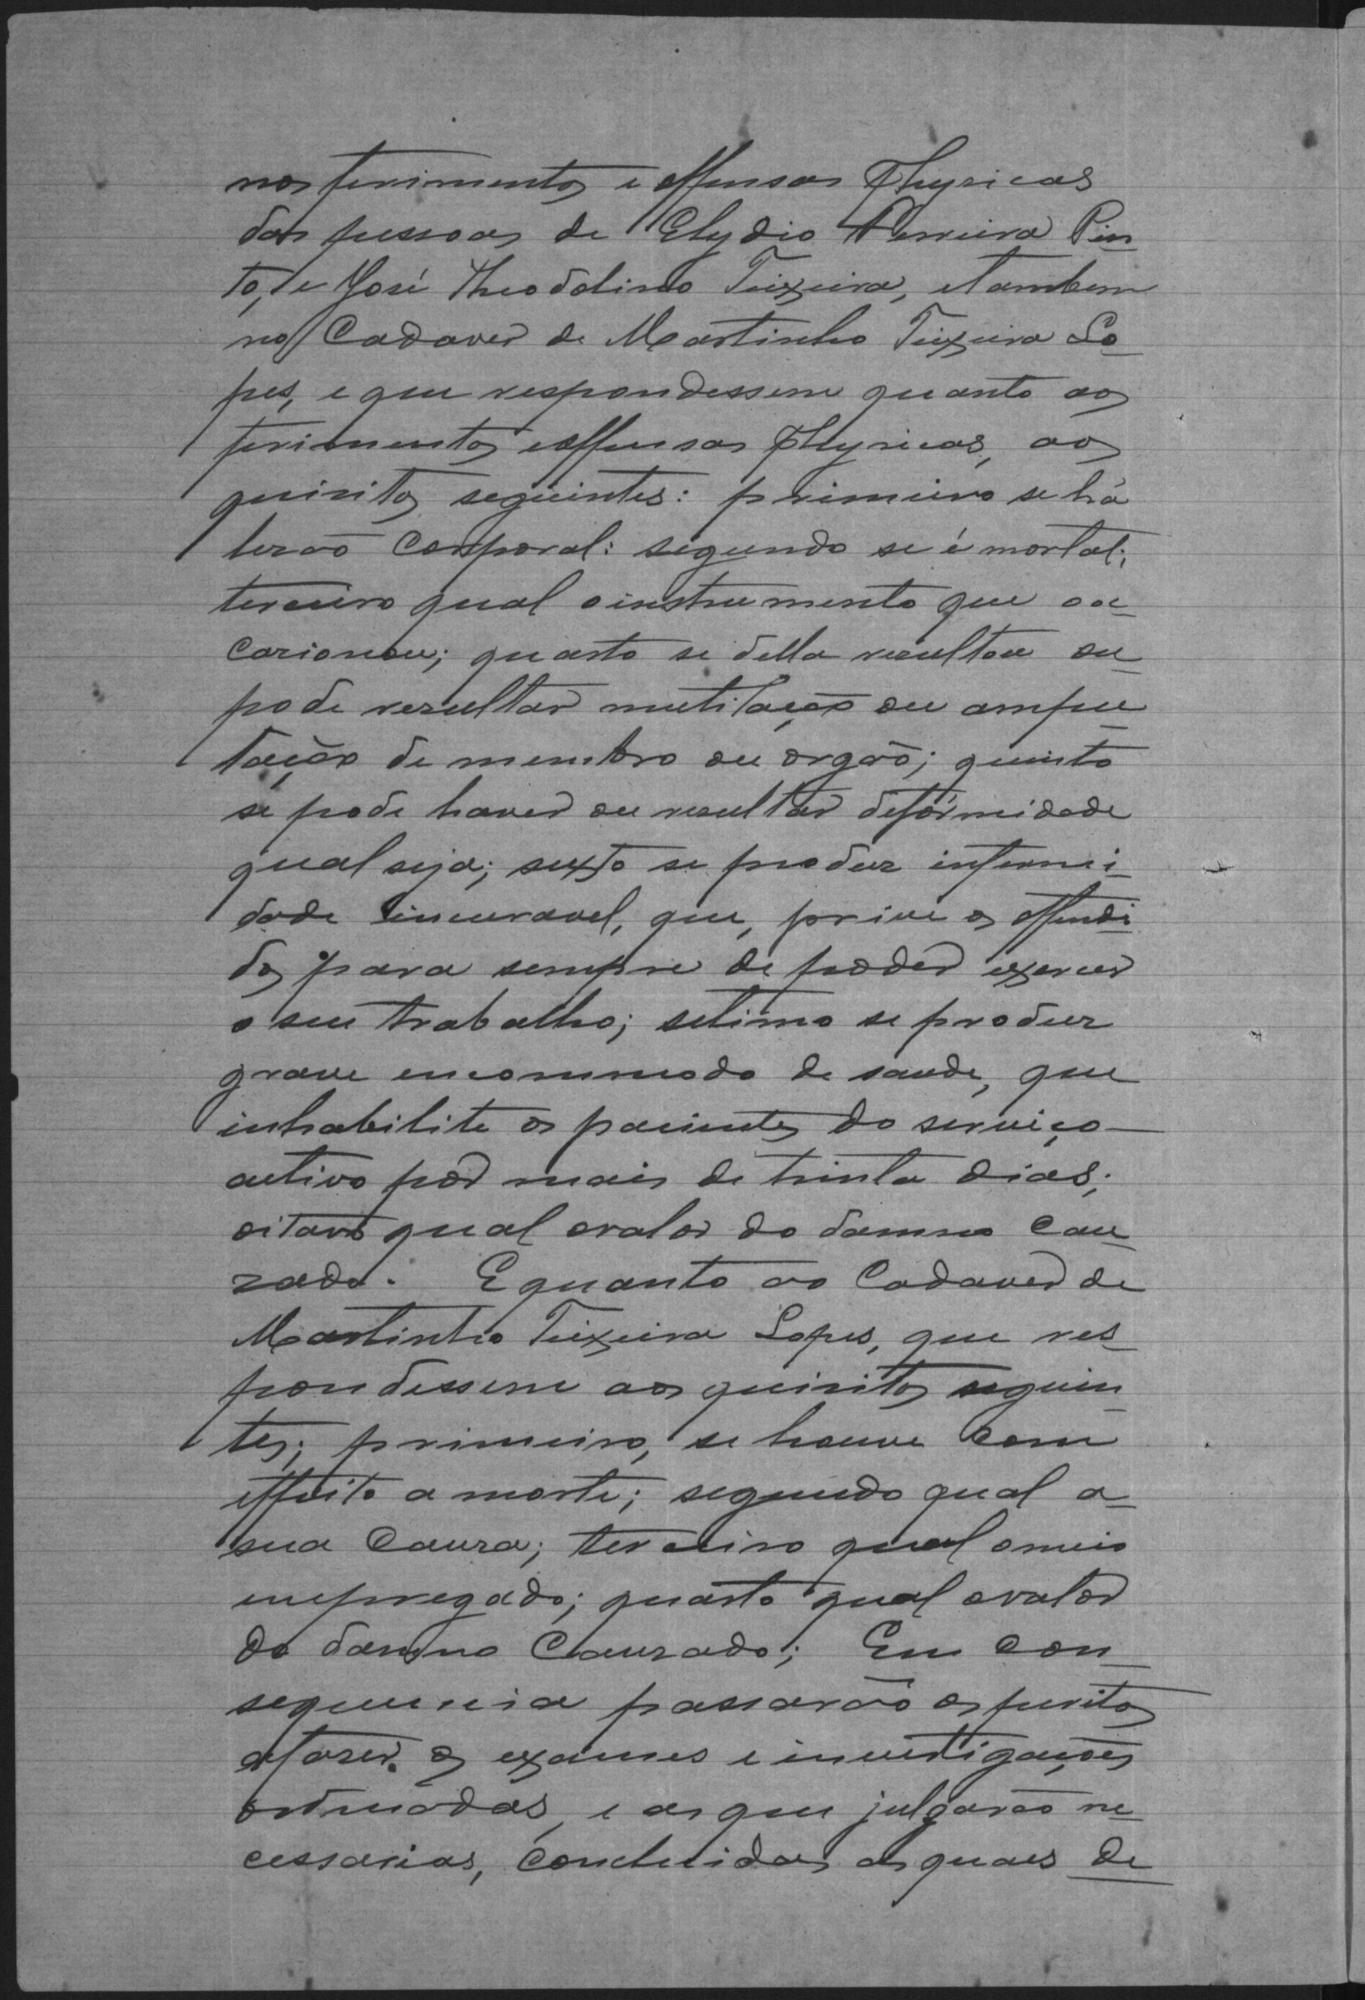 nos ferimentos e offensas Physicas
das pessoas de Elydio Pereira Pin
to, e José Theodolino Teixeira, e tambem
no Cadaver de Martinho Teixeira Lo
pes, e que respondessem quanto aos
ferimentos e offensas physicas, aos
quisitos seguintes: primeiro se há
lesão Corporal: segundo se é mortal;
terceiro qual o instrumento que o oc
casionou; quarto se della resultou ou
pode resultar mutilação ou ampu
tação de membro ou orgão; quinto
se pode haver ou resultar deformidade
qual seja; sexto se produz infermi
dade incuravel, que, prive os offendi
dos para sempre de poder exercer
o seu trabalho; setimo se produz
grave encommodo de saude, que
inhabilite os pacientes do serviço
activo por mais de trinta dias;
oitavo qual o valor do damno Cau
zado. E quanto ao Cadaver de
Martinho Teixeira Lopes, que res
pondessem aos quisitos seguin
tes; primeiro, se houve Com
effeito a morte; segundo qual a
sua Causa; terceiro qual o meio
empregado; quarto qual o valor
do damno Cauzado; Em con
sequencia passarão os peritos
a fazer os exames e investigações
ordenadas, e as que julgarão ne
cessarias, Concluidas as quaes de